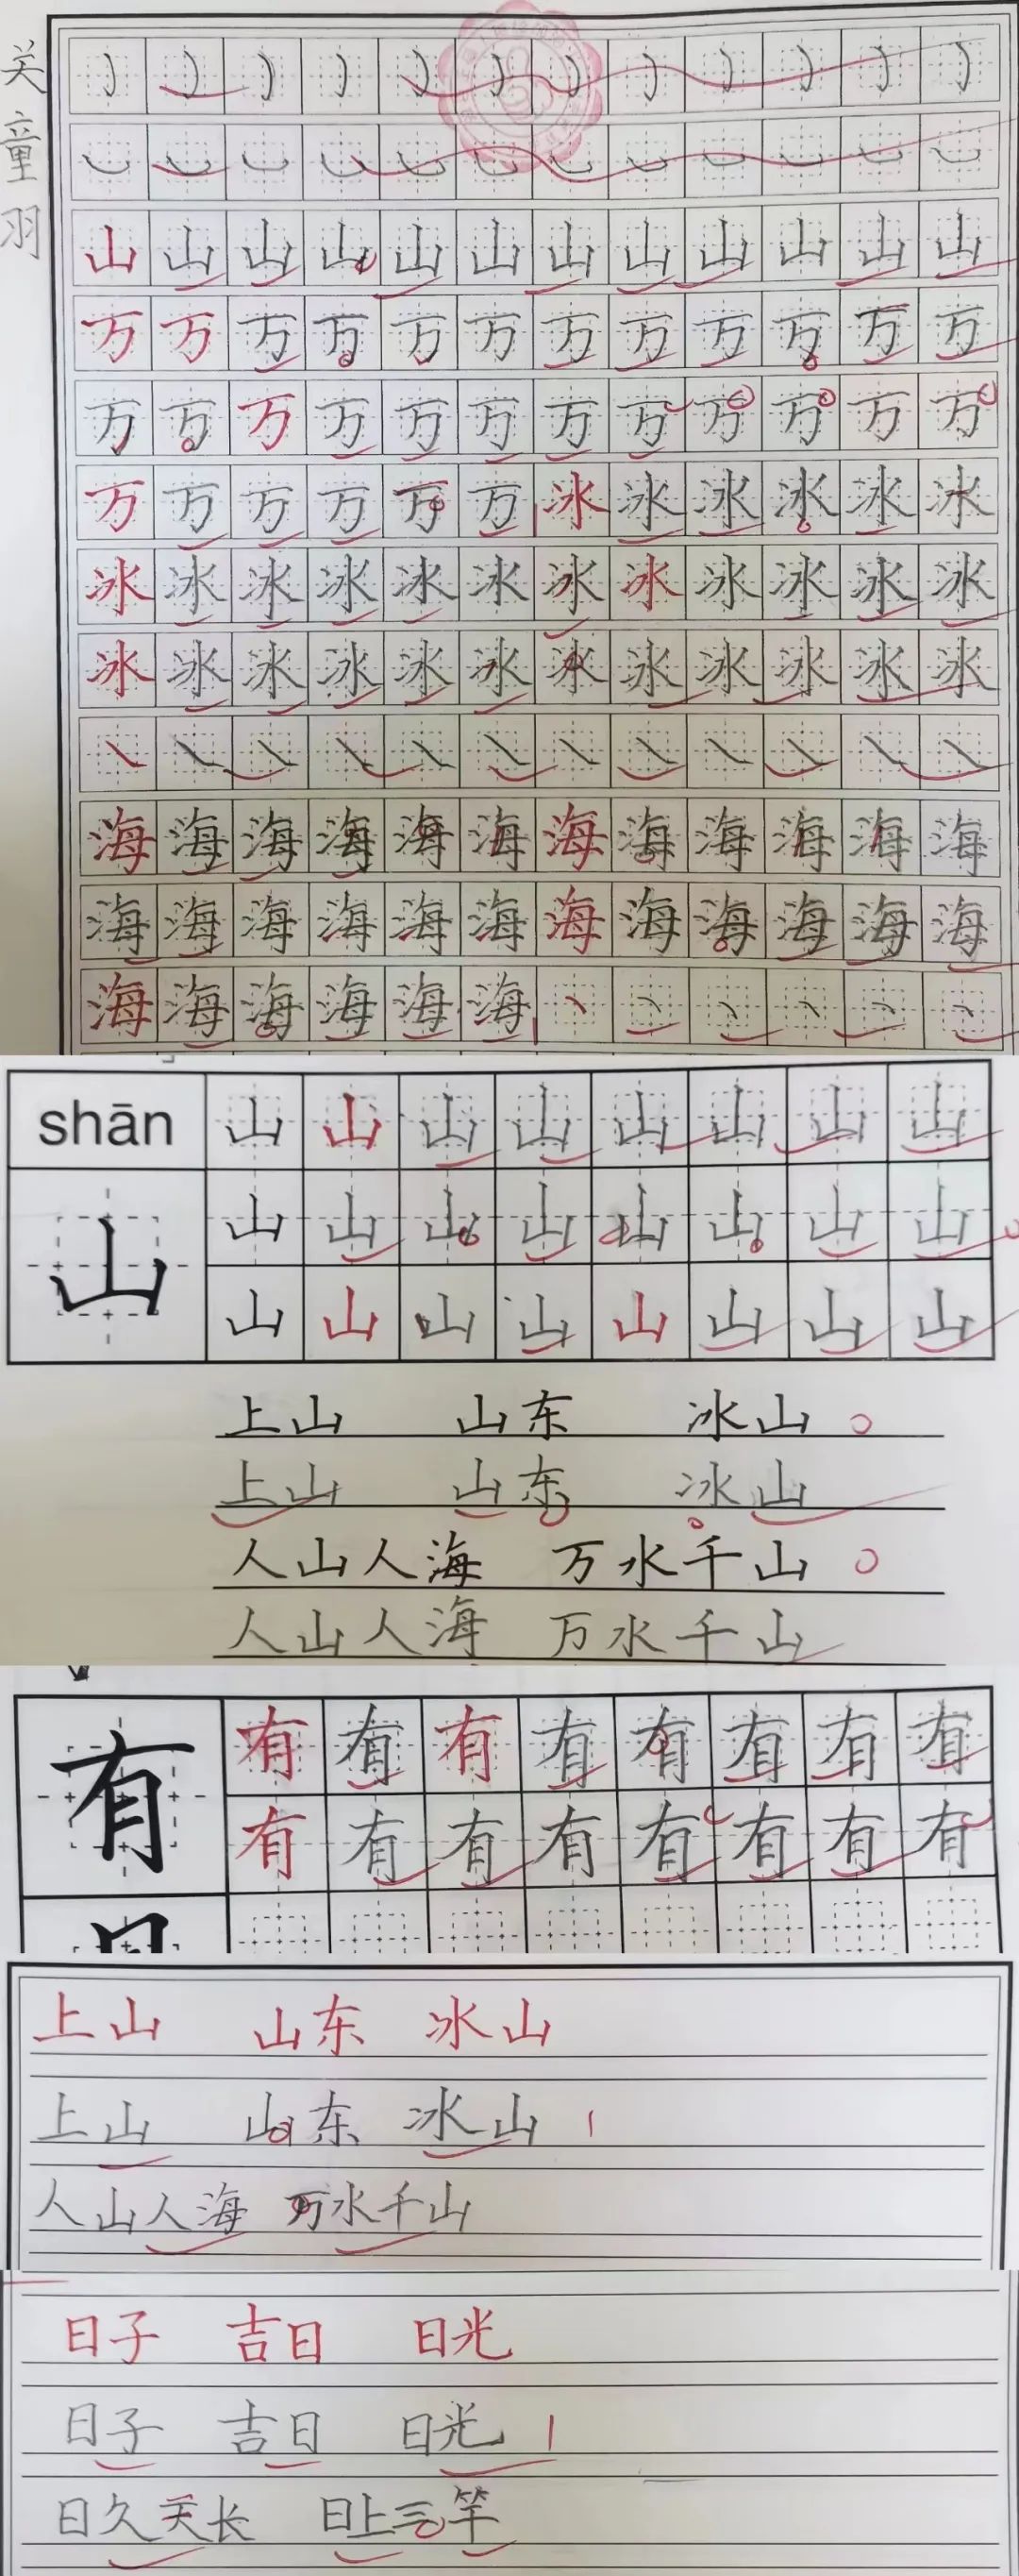 关童羽
山山山山山山山山山山山山
万万万万万万万万万万万万
万万万万万万万万万万万万
万万万万万万冰冰冰冰冰冰
冰冰冰冰冰冰冰冰冰冰冰冰
冰冰冰冰冰冰冰冰冰冰冰冰
海海海海海海海海海海海海
海海海海海海海海海海海海
海海海海海海
shān 山山山山山山山山
山 山山山山山山山山
山山山山山山山山
上山 山东 冰山
上山 山东 冰山
人山人海 万水千山
人山人海 万水千山
有 有有有有有有有有
有有有有有有有有
上山 山东 冰山
上山 山东 冰山
人山人海 万水千山
日子 吉日 日光
日子 吉日 日光
日久天长 日上三竿